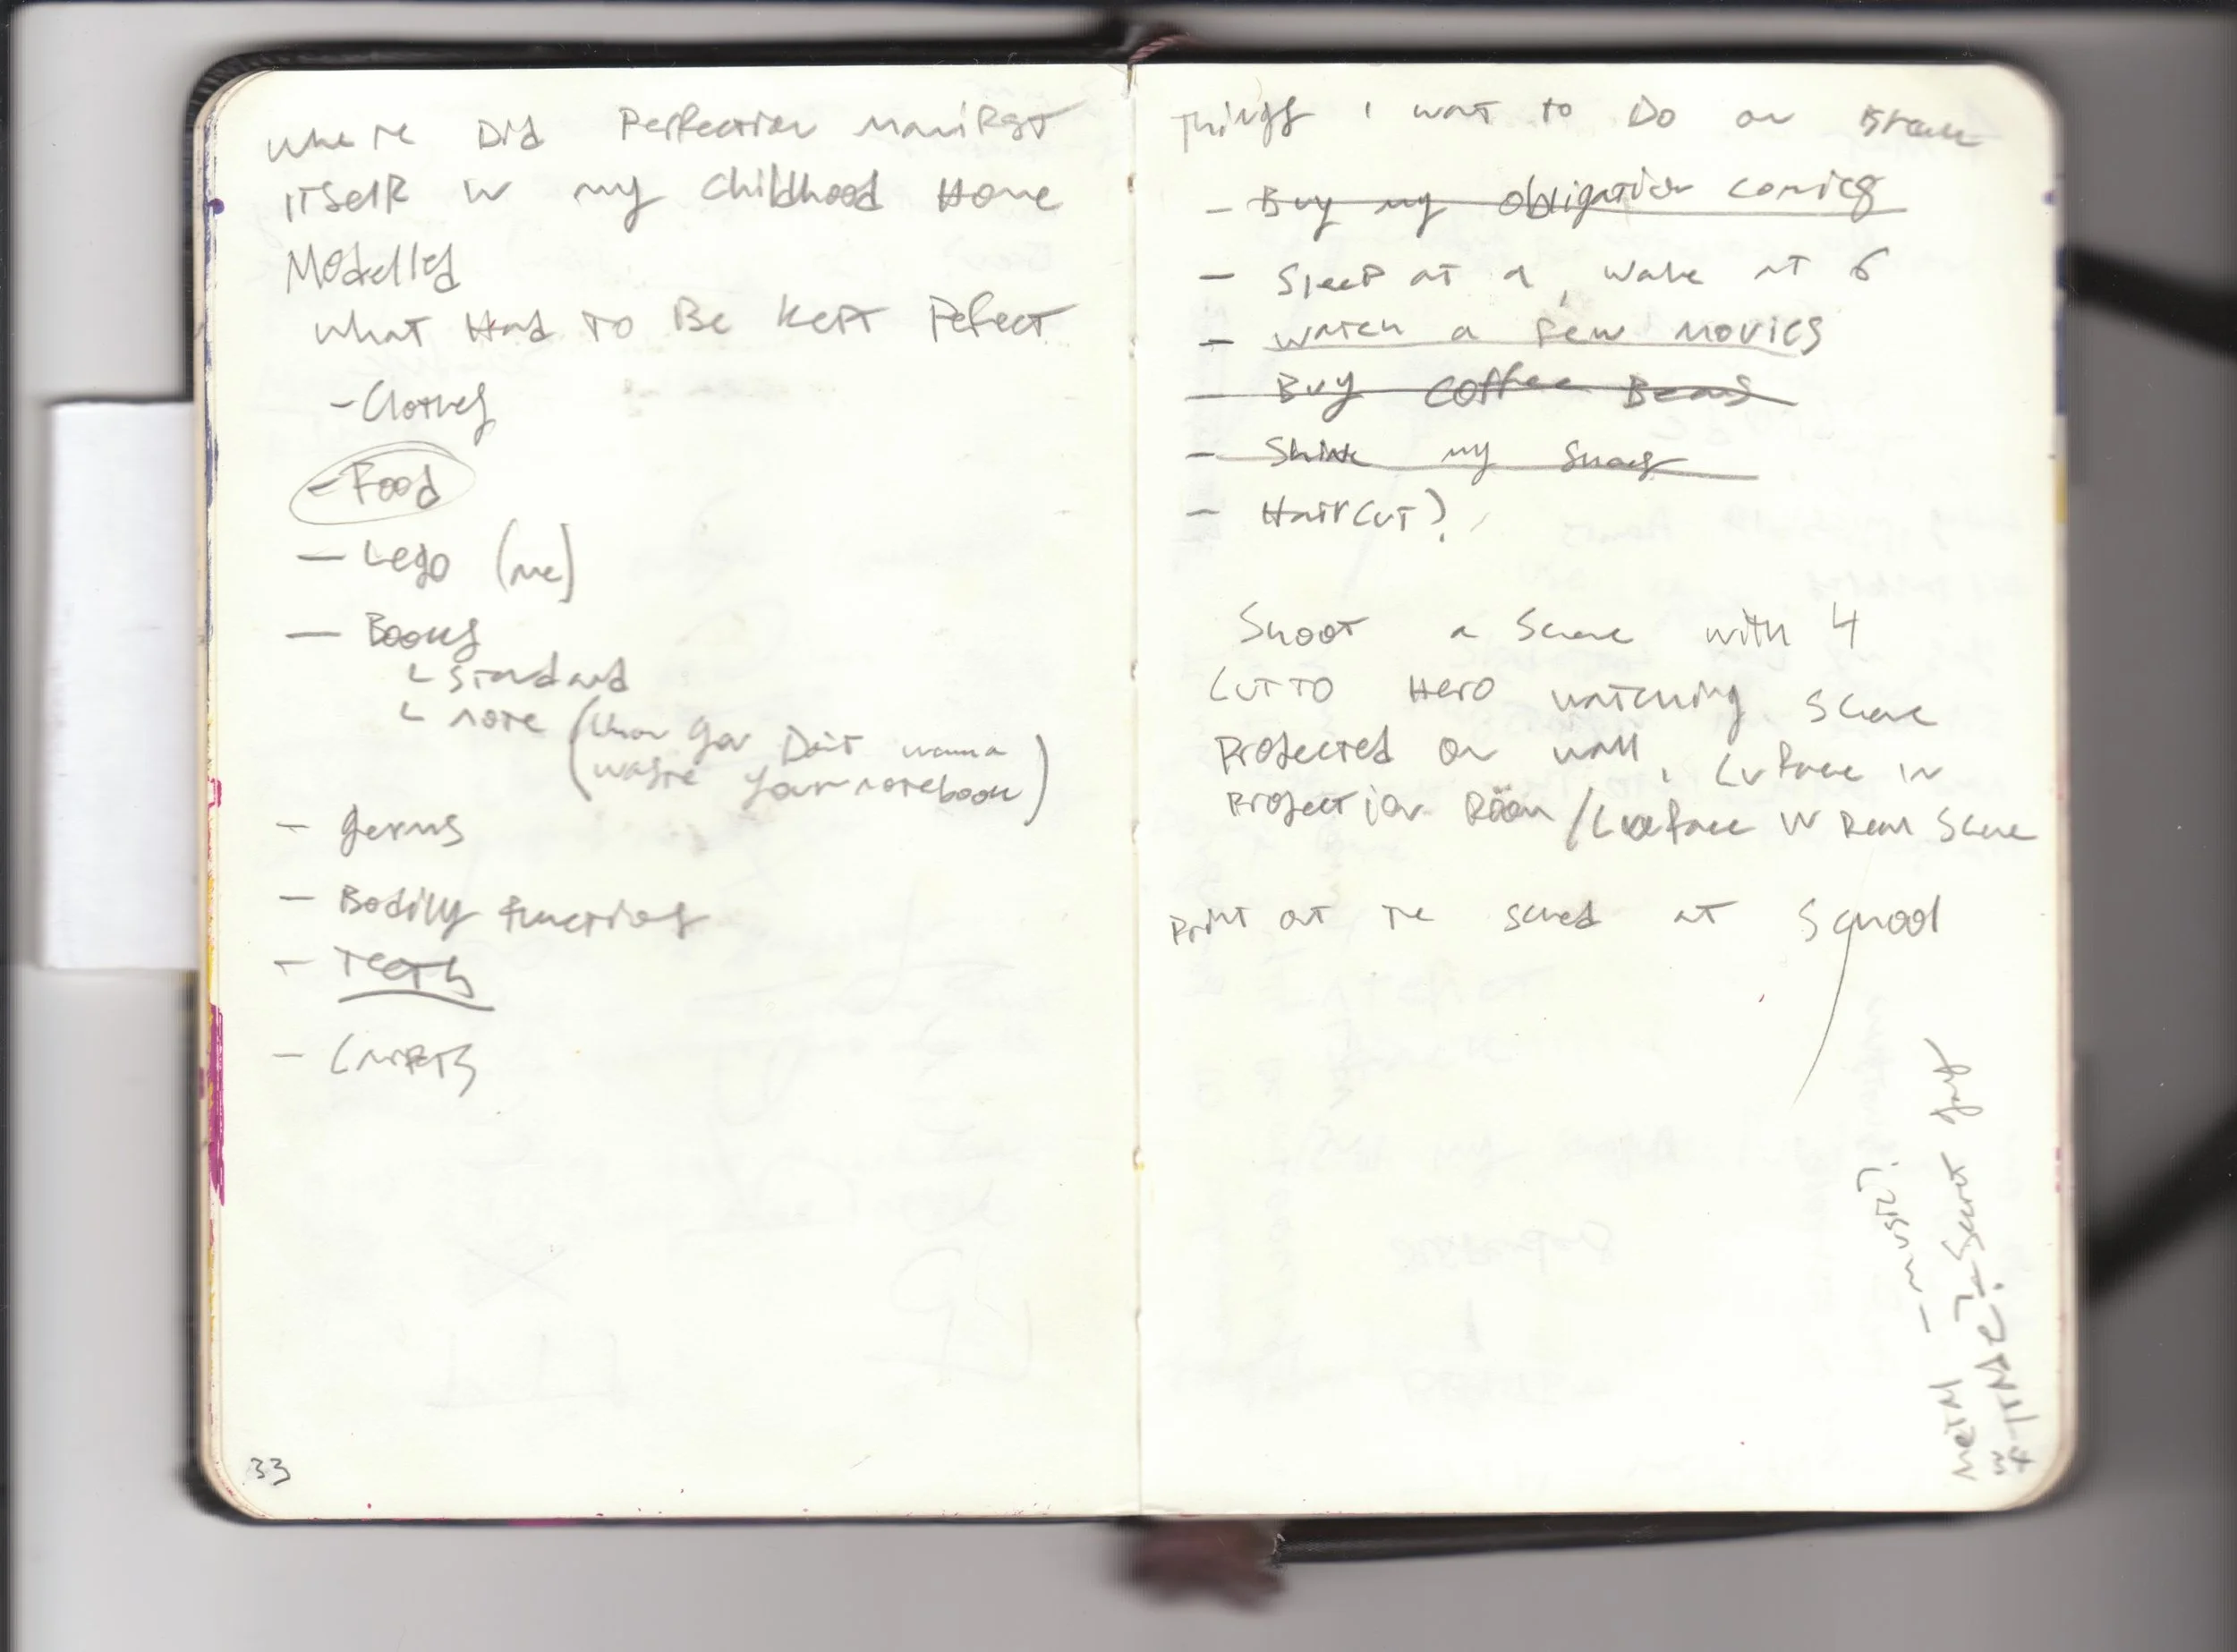 Where Did Perfection Manifest
itself in my childhood Home
Modelled
What Had to Be Kept Pefect
- Clothes
- Food
- Lego (me)
- Books
└ standard
└ note (when you Don't wanna
waste your notebook)
- germs
- Bodily functions
- Teeth
- Carpets
33
Things I want to Do on Break
- Buy my obligation comics
- Sleep at a, wake at 6
- Watch a few movies
- Buy coffee Beans
- Shine my shoes
- Haircut?
Shoot a scene with 4
Cut to Hero watching scene
Projected on wall,
in
Projection Room / in Real Scene
Print out the sched at School
- music?
- Secret
Metal